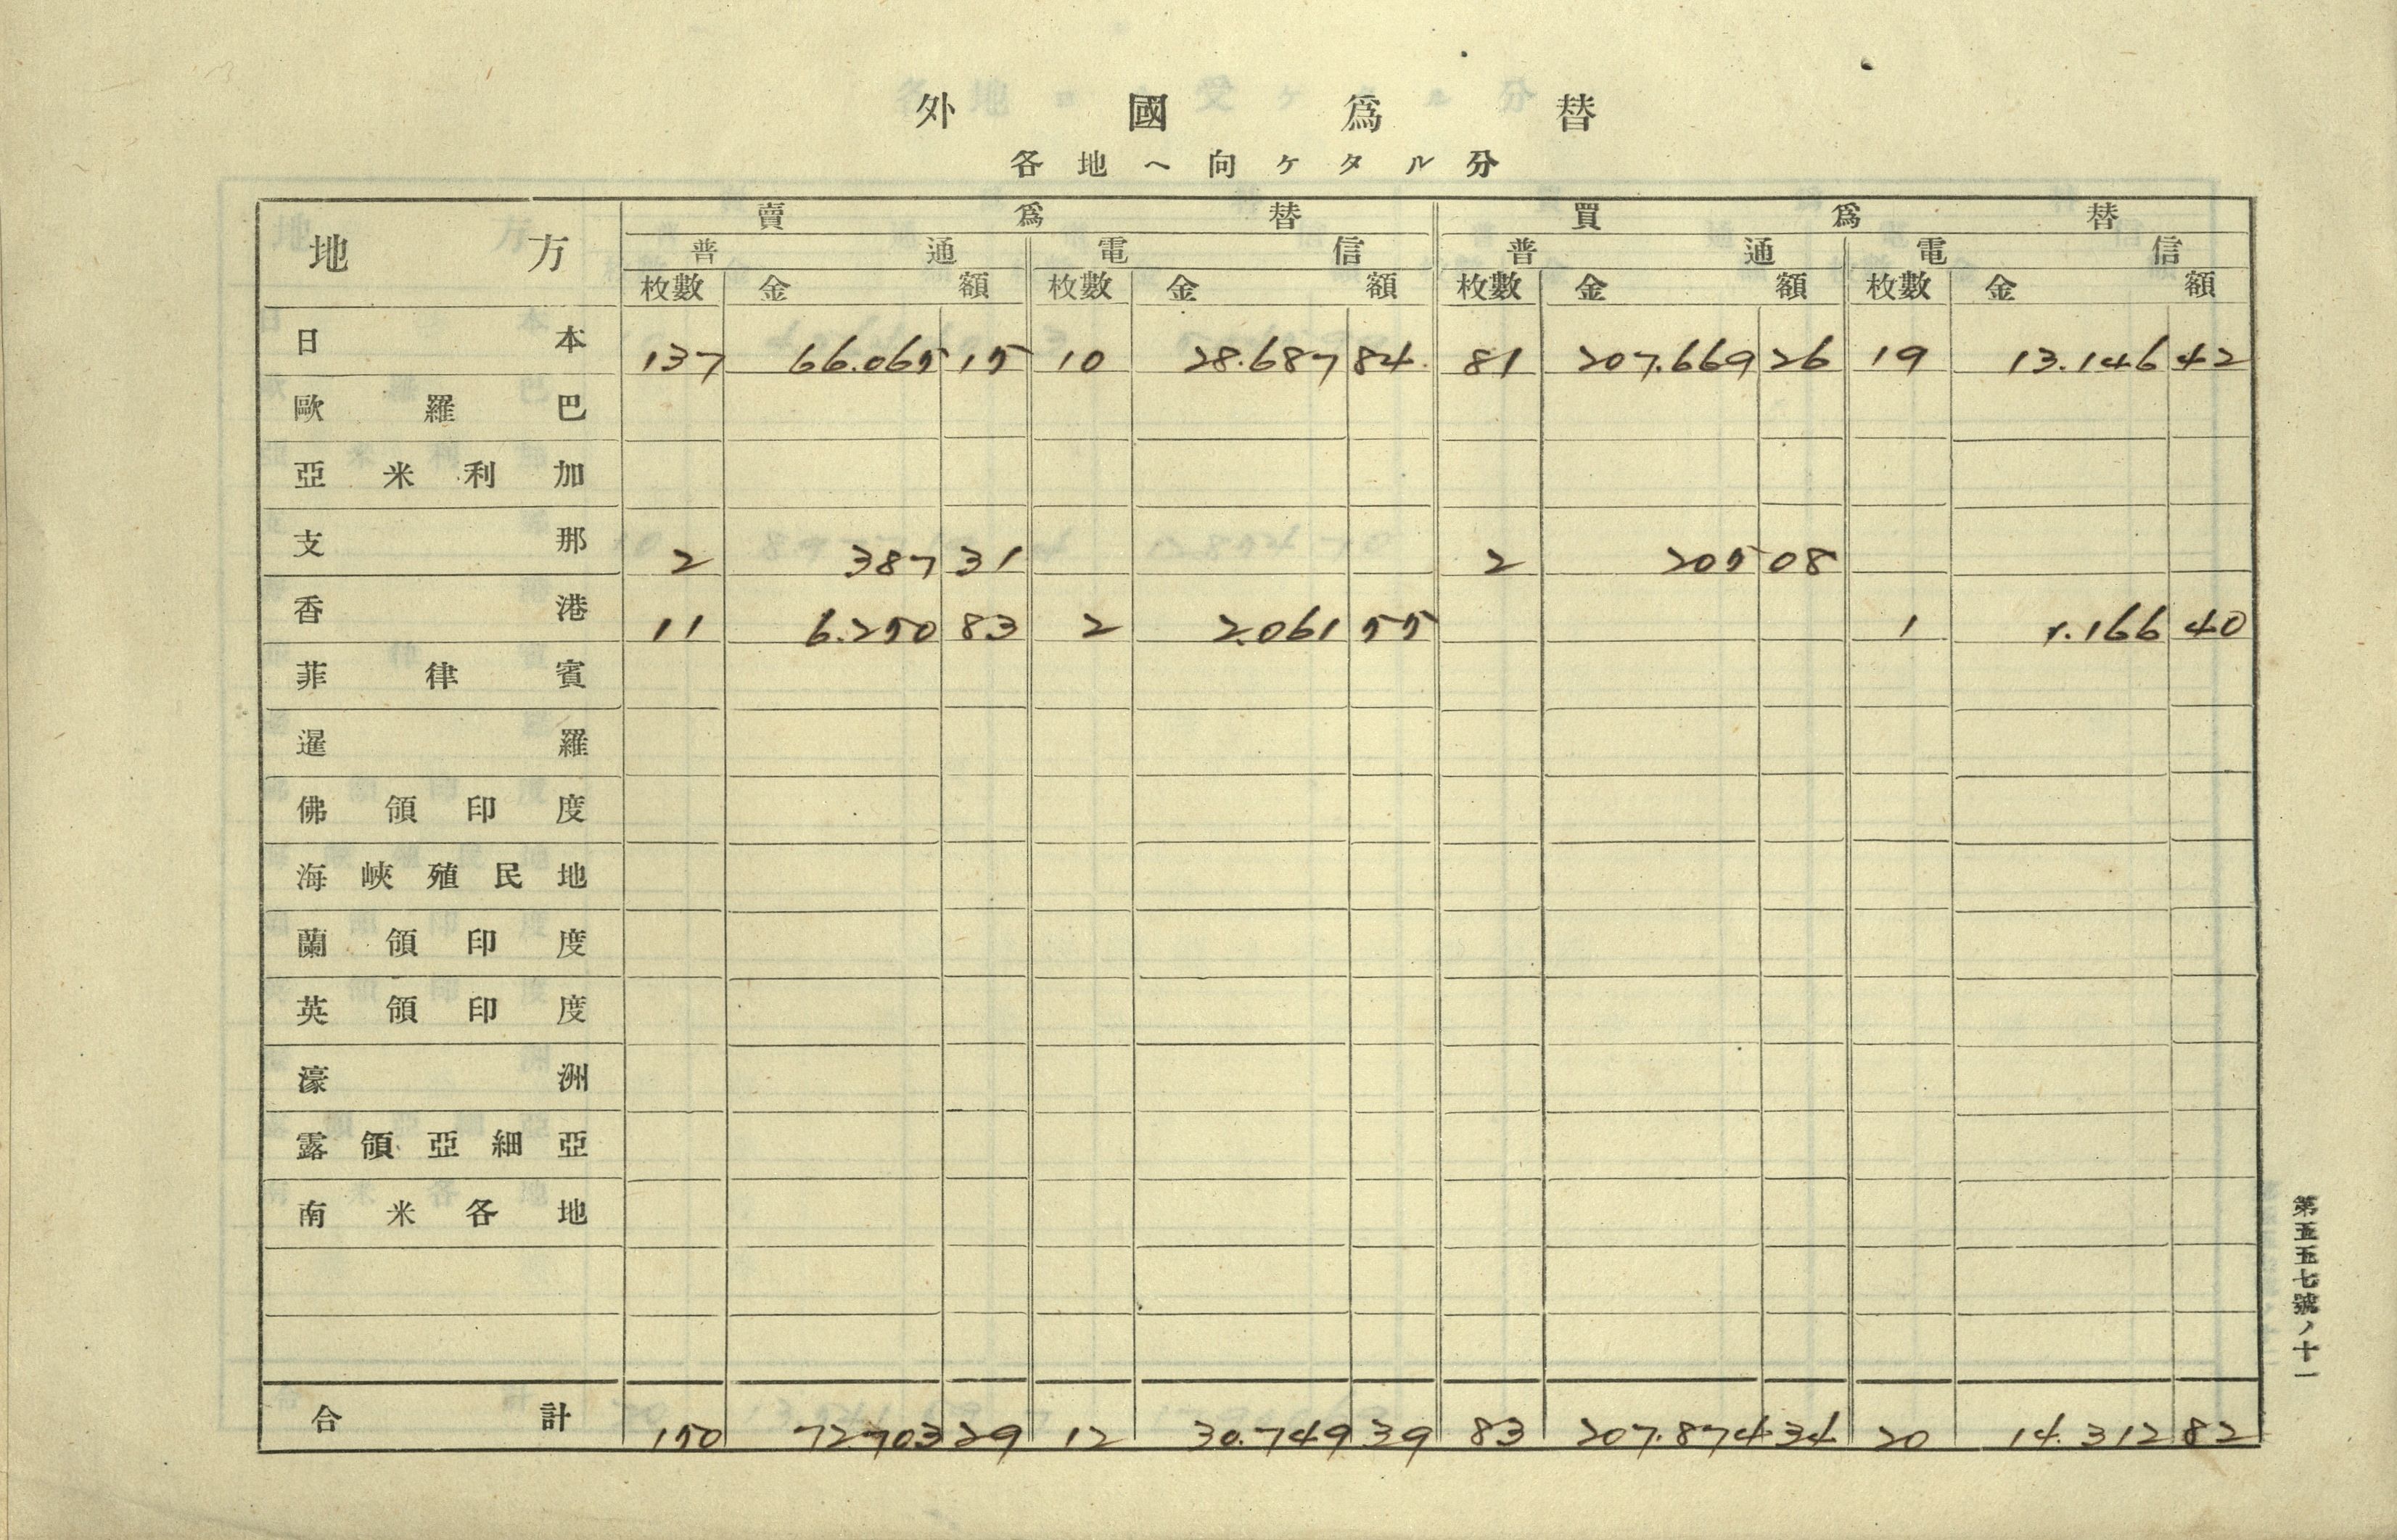 外國爲替
各地ヘ向ケタル分
地方 賣爲替 買爲替
普通 電信 普通 電信
枚數 金額 枚數 金額 枚數 金額 枚數 金額
日本 137 66.065 15 10 28.687 84. 81 207.669 26 19 13.146 42
歐羅巴
亞米利加
支那 2 387 31 2 205 08
香港 11 6.250 83 2 2.061 55 1 1.166 40
菲律賓
暹羅
佛領印度
海峽殖民地
蘭領印度
英領印度
濠洲
露領亞細亞
南米各地
合計 150 72703 29 12 30.749 39 83 207.874 34 20 14.312 82
第五五七號ノ十一